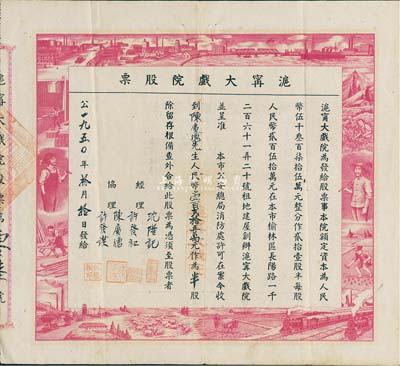 滬甯大戲院股票
滬甯大戲院為發給股票事本院額定資本為人民
幣伍千叁百柒拾伍萬元整分作貳拾壹股半每股
人民幣貳百伍拾萬元在本市榆林區長陽路一千
二百六十一弄二十號租地建屋創辦滬甯大戲院
並呈准 本市公安總局消防處許可在案今收
到陳廣德先生人民幣壹百貳拾五萬元作為半股
除留存根備查外合給此股票為憑須至股票者
經理 沈階記
許發記
協理 陳廣德
許發謹
公一九五0年拾月拾日發給